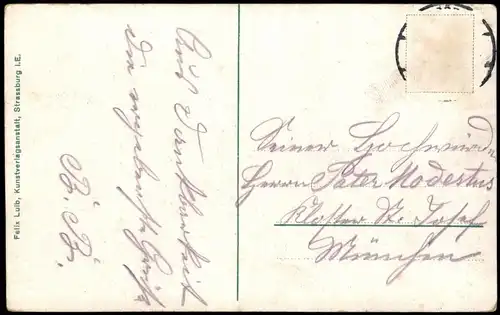 Felix Luib, Kunstverlagsanstalt, Strassburg i.E.
Aus Dankbarkeit
die ergebenste Grüße
B. B.
Seiner Hochwürd.
Herrn Pater Modestus
Kloster St. Josef
München